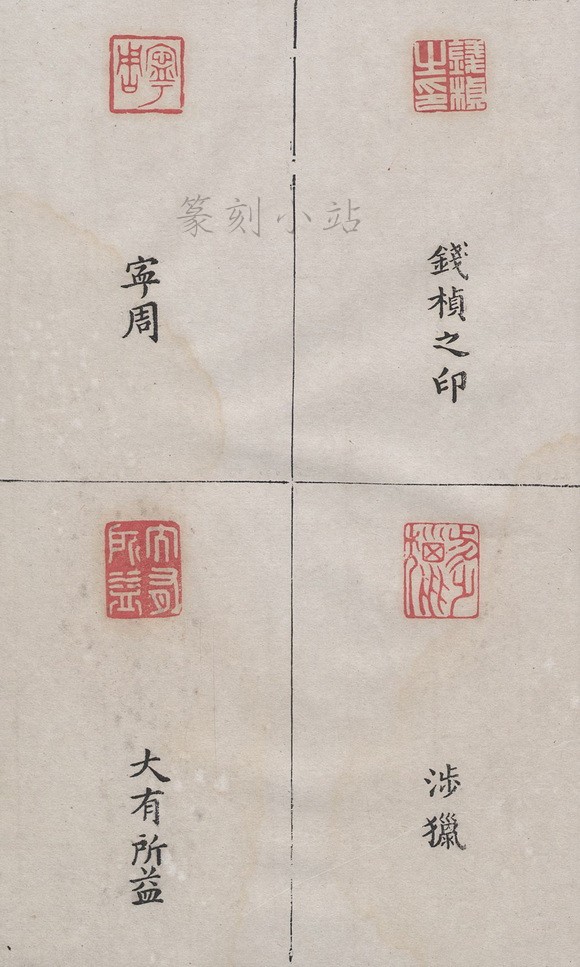 錢楨之印
寍周
篆刻小站
涉獵
大有所益